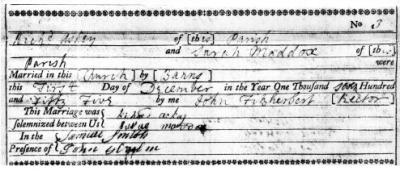 No 3
Rich^d Astey of [this] Parish
and Sarah Maddox of [this]
Parish were
Married in this [Church] by [Banns]
this First Day of December in the Year One Thousand Hundred
and Fifty Five by me John Fitzherbert [Rector]
This Marriage was
Solemnized between Us Sarah Maddox
In the Samuel Smith
Presence of John